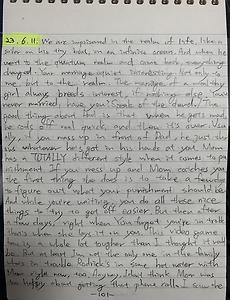 23.6.11. We are imprisoned in the realm of life, like a
sailor on his tiny boat, on an infinite ocean. And when he
went to the quantum realm and came back, everything
changed. Our marriage quiet interesting. Not only to
me, but to the realm. The marriage of a wealthy
man always breeds interest, if nothing else. You
never married, have you? Speak of the dearly. The
good thing about Dad is that when he gets mad,
he cools on real quick, and then it's over. Usu
ally, if you mess up in front of Dad he just
you whatever he's got in his hands at you. Mom
has a TOTALLY different style when it comes to pu
nishment. If you mess up and Mom catches you
the first thing she does is to take a few days
to figure out what your punishment should be
And while you're waiting, you do all these nice
things to try to get off easier. But then after
a few days, right when you forget you're in trou
ble, that's when she lays it on you. This video game
ban is a whole lot tougher than I thought it would
be. But at least I'm not the only one in the family
who's in trouble. Rodrick's in some hot water with
Mom right now, too. Anyway, I don't think Mom was
too happy about getting that phone call. I saw the
-101-